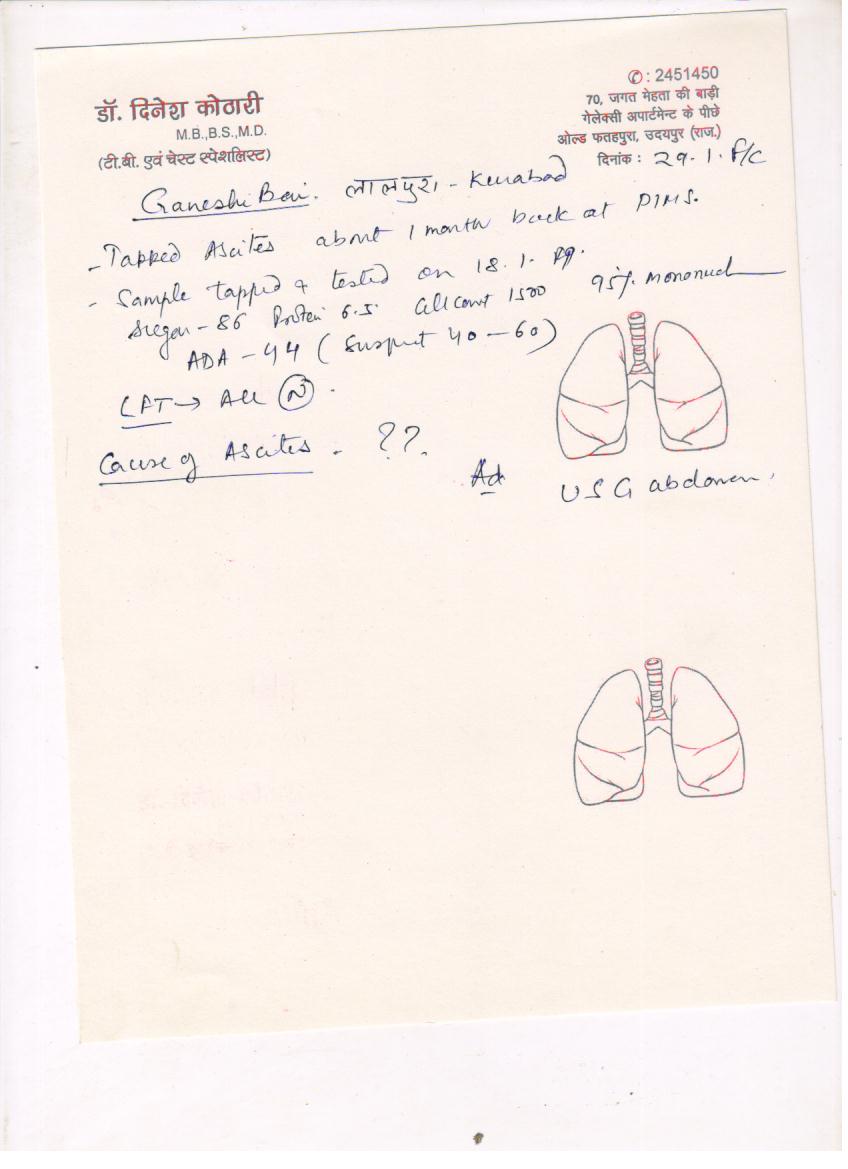 डॉ. दिनेश कोठारी
M.B.,B.S.,M.D.
(टी.बी. एवं चेस्ट स्पेशलिस्ट)
✆: 2451450
70, जगत मेहता की बाड़ी
गेलेक्सी अपार्टमेन्ट के पीछे
ओल्ड फतहपुरा, उदयपुर (राज.)
दिनांक : 29.1.
Ganeshi Bai. लालपुरा -
- Tapped Ascites about 1 month back at PIMS.
- Sample tapped & tested on 18.1.
Sugar - 86 Protein 6.5 Cell count 1500 95% mononucl
ADA - 44 (Suspect 40 - 60)
LFT → All (N) .
Cause of Ascites - ??.
Ad USG abdomen,